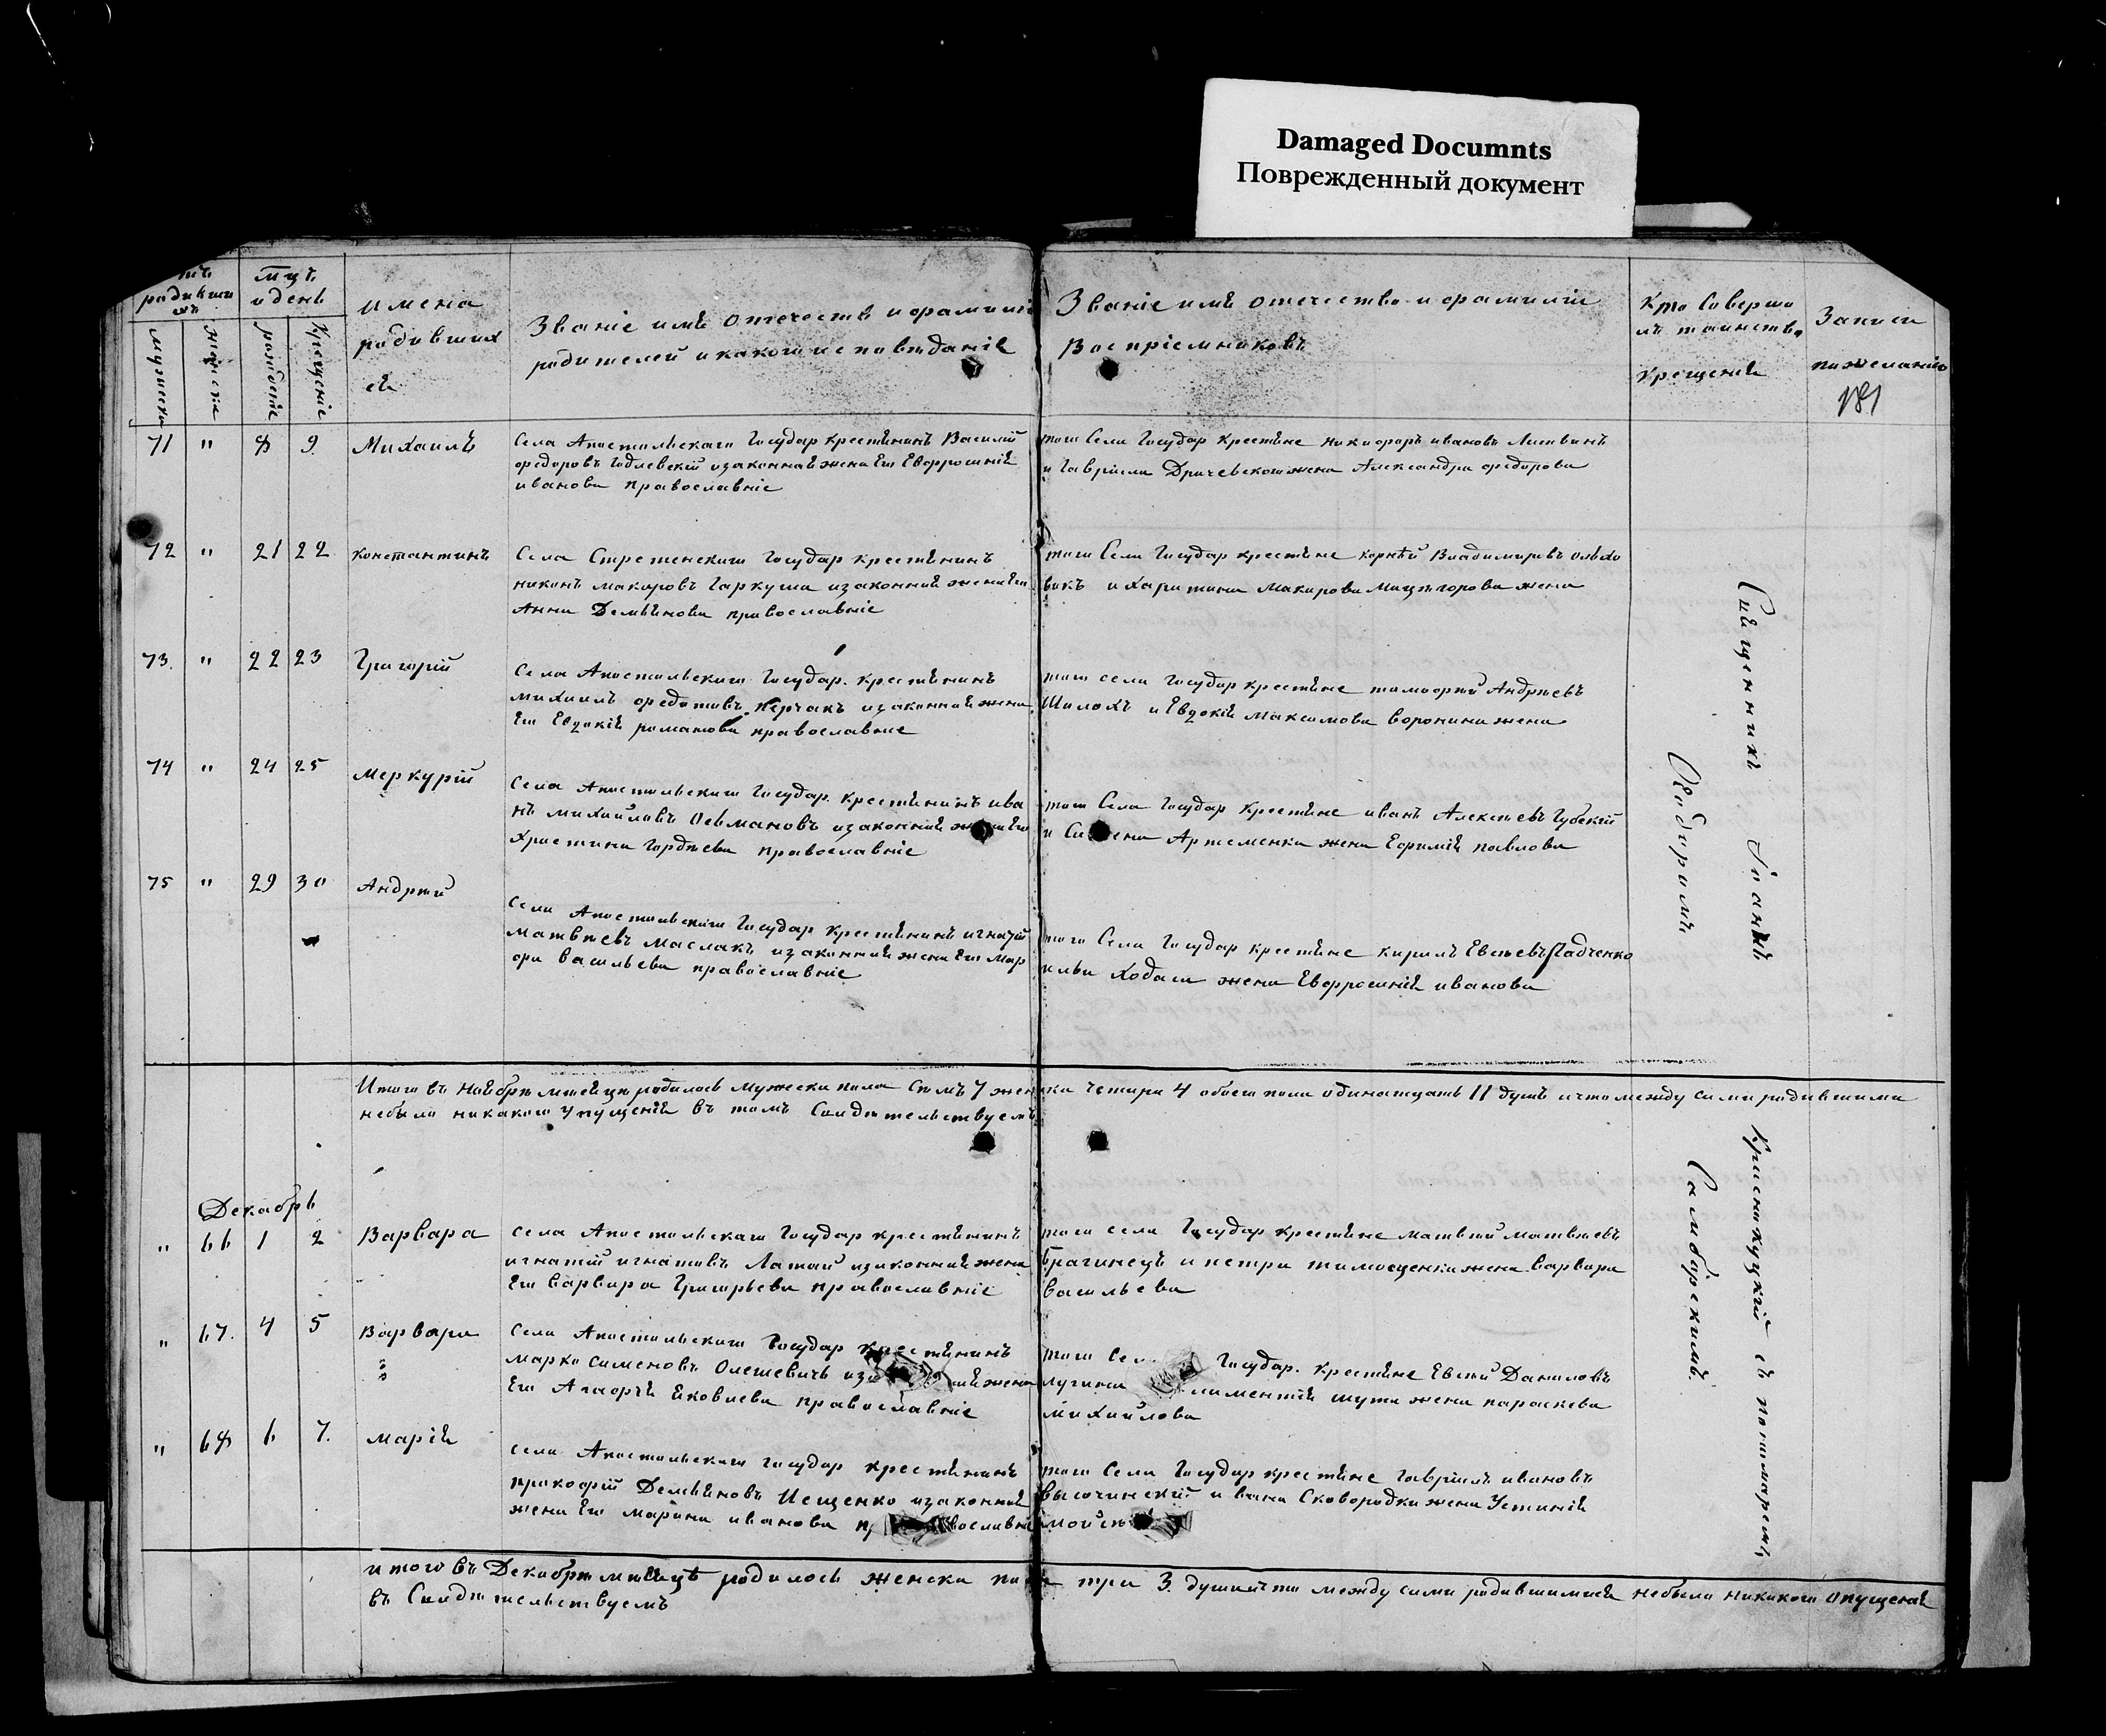 Damaged Documnts
Поврежденный документ
родивши
хъ
мужеска
женска
мцъ
и день
рожденіе
крещеніе
имена
родивших
ся
Званіе имя отечеств и фамиліи
родителей и какого исповѣданія
Званіе имя отечество и фамилія
Воспріемниковъ
Кто Соверша
лъ таинство
крещенія
Записи
по желанію
181
71 " 8 9. Михаилъ
Села Апостольскаго Государ крестянинъ Василій
федоровъ изаконная жена Его Евфросинія
иванова православніе
того Села Государ крестяне никифоръ ивановъ Литвинъ
и Гавріила жена Александра федорова
72 " 21 22 константинъ
Села Стретенскаго Государ крестянинъ
никонъ макаровъ Гаркуша изаконная жена Его
Анна Демянова православніе
того Села Государ крестяне корнѣй Владимировъ ольхо
викъ и Харитина Макарова жена
73. " 22 23 Григорій
Села Апостольскаго Государ. крестянинъ
михаилъ федотовъ изаконная жена
Его Евдокія романова православніе
того села Государ крестяне тимофей Андрѣевъ
Шило и Евдокія Максимова воронина жена
74 " 24 25 Меркурій
Села Апостольскаго Государ. крестянинъ ива
нъ михайловъ изаконная жена Его
Христина Гордѣева православніе
того Села Государ крестяне иванъ Алексѣевъ Губскій
и Семена Артеменка жена Ефимія павлова
75 " 29 30 Андрей
Села Апостольскаго Государ крестянинъ игнатій
Матвѣевъ Маслакъ изаконная жена Его Мар
фа васильева православніе
того Села Государ крестяне кирилъ Евсѣевъ Радченко
ильи Ходаса жена Евфросинія иванова
Итого въ Ноябрѣ мѣсяцѣ родилось мужеска пола Семъ 7 женска четыри 4 обоего пола одинатцать 11 душъ и что между сими родившими
небыло никакого упущенія въ томъ Свидѣтельствуемъ
Декабрь
" 66 1 2 Варвара
села Апостольскаго Государ крестянинъ
игнатій игнатовъ Латай изаконная жена
Его варвара Григорьева православніе
того села Государ крестяне матвѣй матвѣевъ
Брагинецъ и петра тимощенка жена варвара
васильева
" 67. 4 5 варвара
Села Апостольскаго Государ крестянинъ
марко Сименовъ Олешевичъ жена
Его Агафія Яковлева православніе
того Сел Государ. крестяне Евсѣй Даниловъ
лугина шута жена параскева
михайлова
" 68 6 7. Марія
села Апостольскаго Государ крестянинъ
прокофій Демяновъ Ищенко изаконная
жена Его марина иванова православніе
того Села Государ крестяне Гавріилъ ивановъ
высочинскій и вана Сковородки жена Устинія
итого въ Декабрѣ мѣсяцѣ родилось женска пола три 3 души и что между сими родившимися небыло никакого опущенія
въ Свидѣтельствуемъ
Священникъ Іоаннъ
Крисенокуцкій съ пономаремъ
Самборскимъ